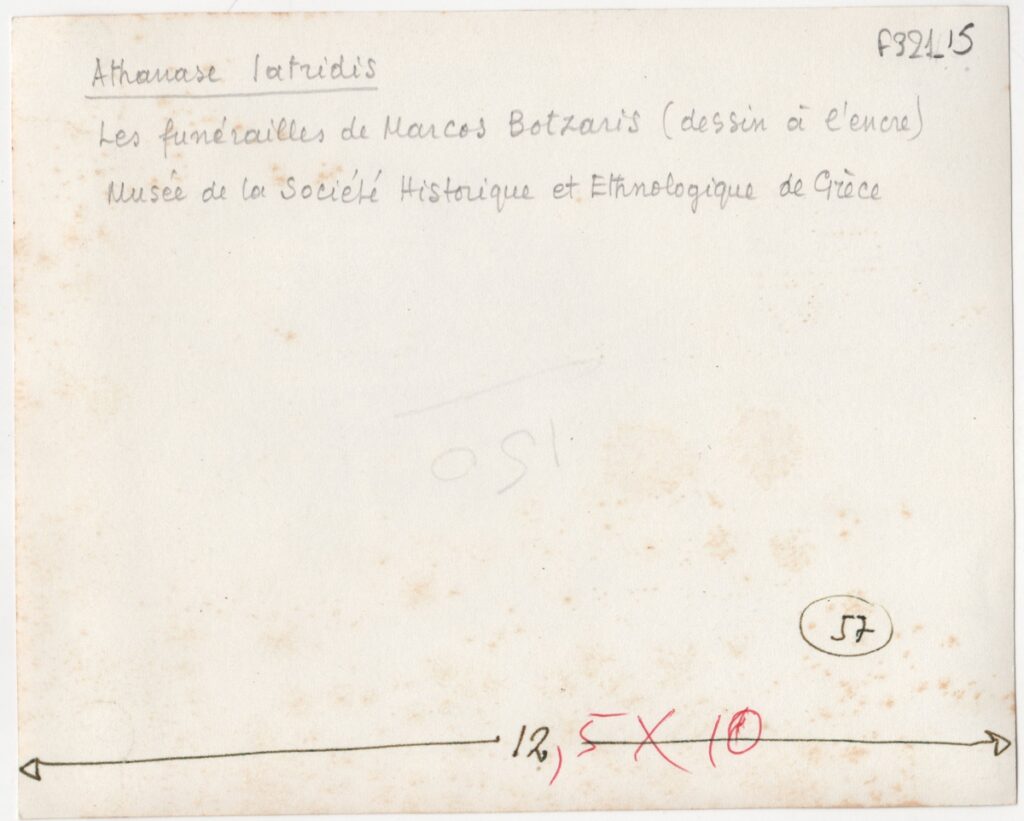 F321_15
Athanase Iatridis
Les funérailles de Marcos Botzaris (dessin à l'encre)
Musée de la Société Historique et Ethnologique de Grèce
150
57
12,5 X 10